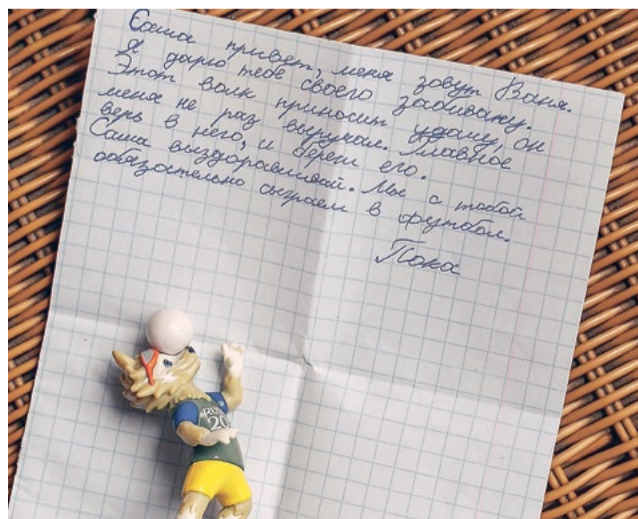 Саша привет, меня зовут Ваня.
Я дарю тебе своего забиваку.
Этот волк приносит удачу, он
меня не раз выручал. Главное
верь в него, и береги его.
Саша выздоравливай. Мы с тобой
обязательно сыграем в футбол.
Пока
RUS
20